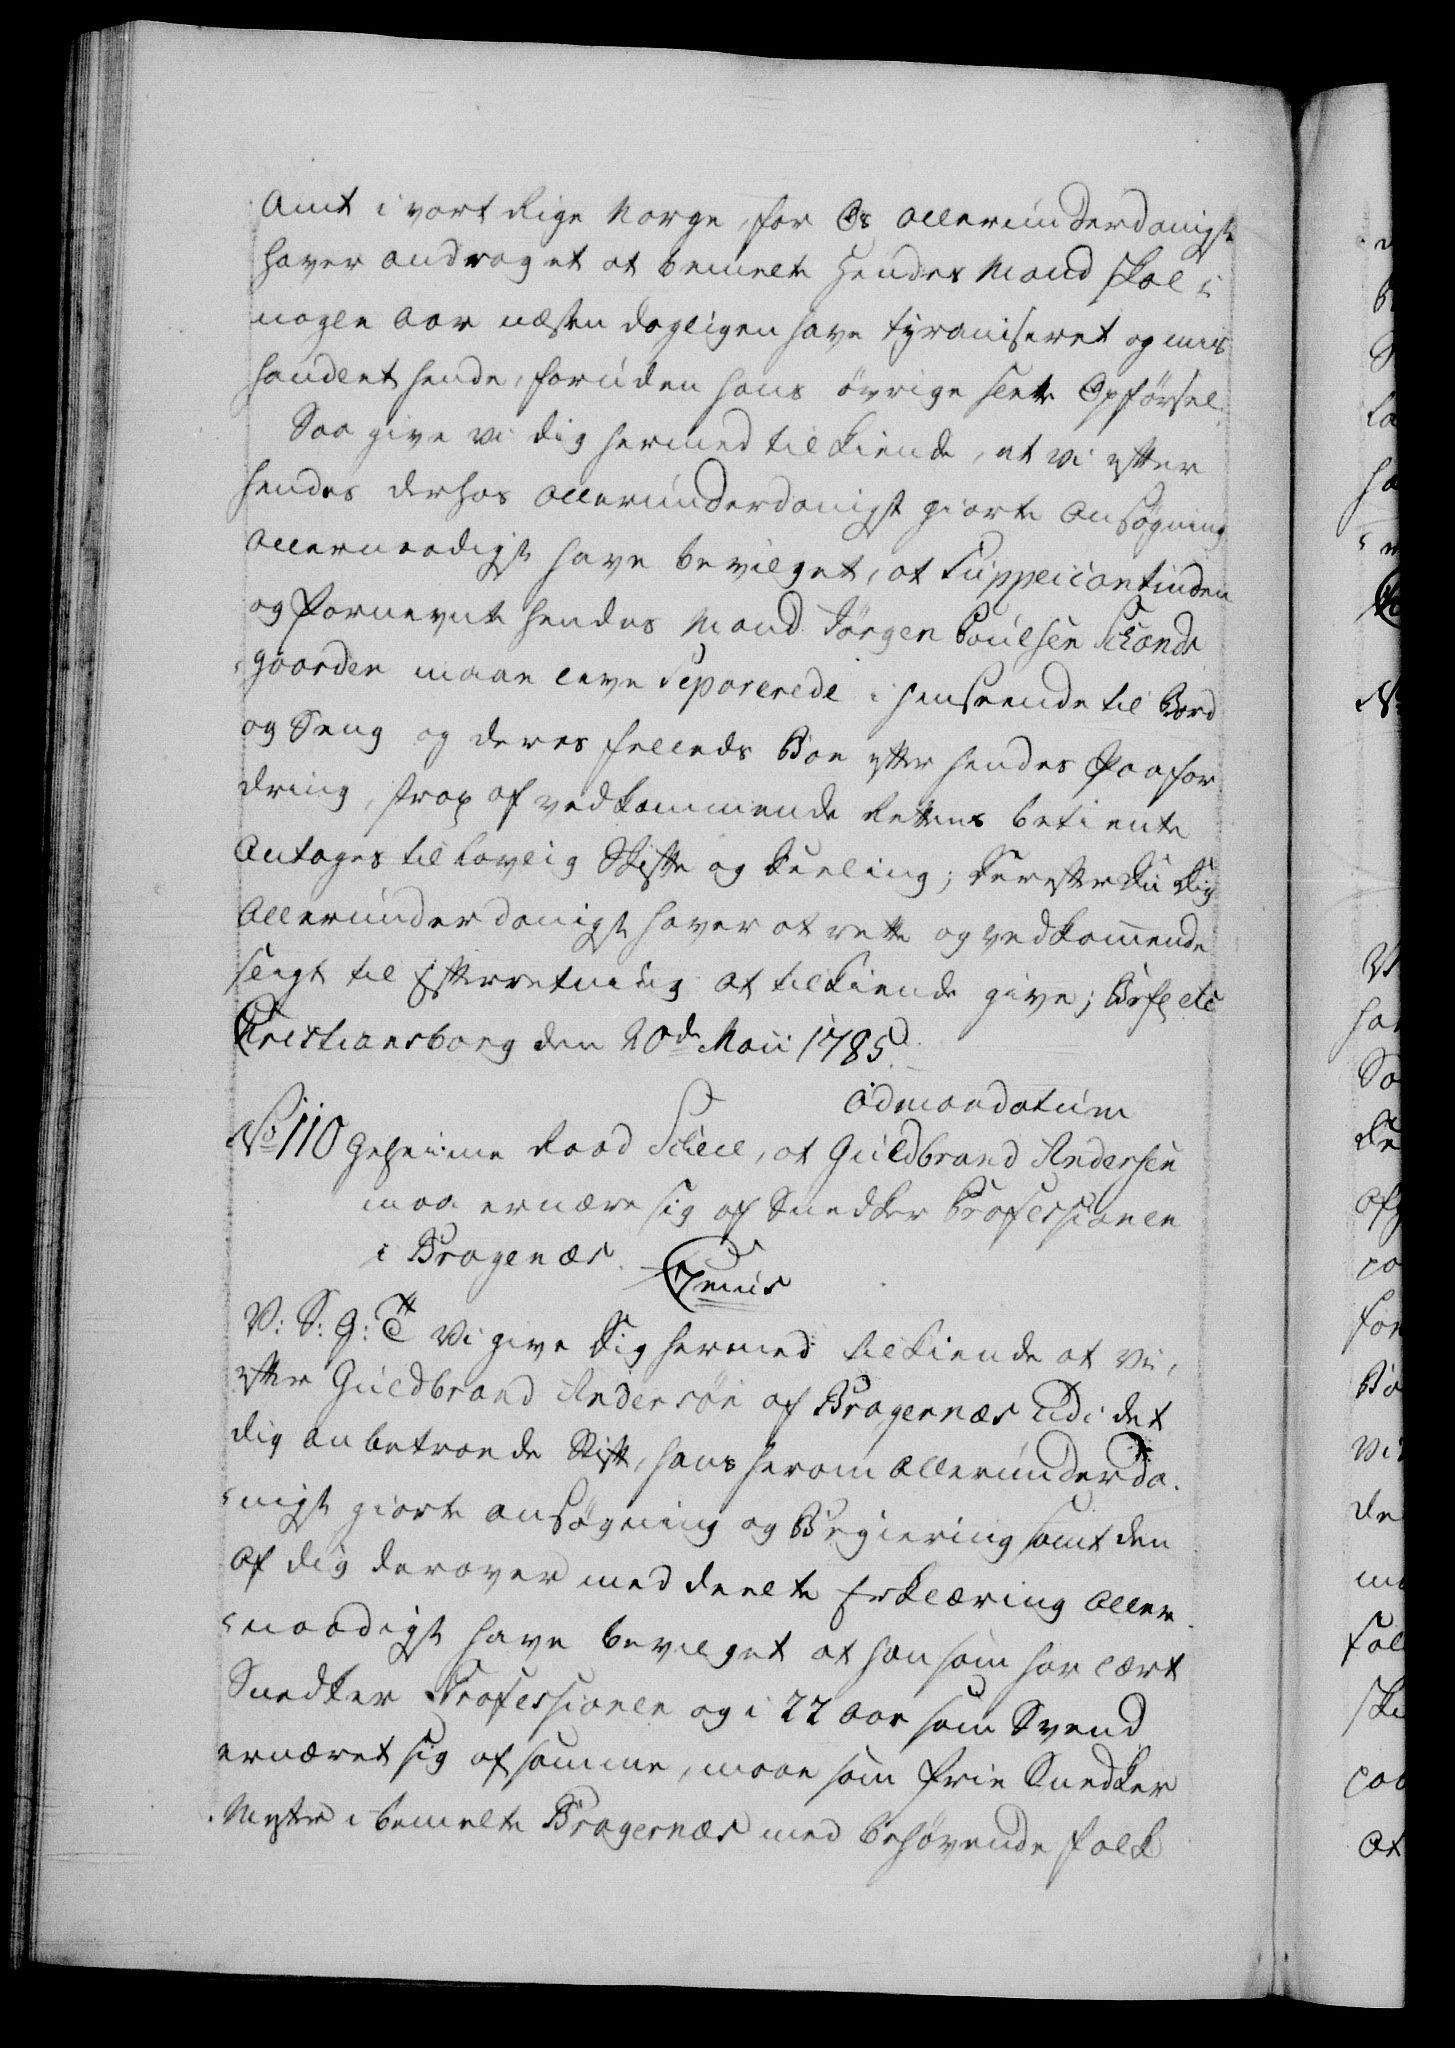 Amt i vort Rige Norge, for Os allerunderdanigst
haver andraget at bemelte hendes Mand skal i
nogle Aar næsten dagligen have tyraniseret og mis
handlet hende, foruden hans øvrige slette Opførsel.
Saa give vi dig hermed tilkiende, at vi efter
hendes derhos allerunderdanigst giorte Ansøgning
allernaadigst have bevilget, at Supplicantinden
og fornevnte hendes Mand Jørgen Poulsen Schands
gaarden maae leve Separerede i henseende til Bord
og Seng og deres fælleds Boe efter hendes Paafor
dring, strax af vedkommende Rettens betiente
antages til lovlig Skifte og Deeling; Derefter Du Dig
allerunderdanigst haver at rette og vedkommende
sligt til Efterretning at tilkiende give; Befl etc
Christiansborg den 20de Maii 1785.
ad mandatum
No 110 Geheime Raad Scheel, at Guldbrand Andersen
maa ernære sig af Snedker Professionen
i Bragenæs.
V: S: G: T: Vi give Dig hermed tilkiende at vi,
efter Guldbrand Andersøn af Bragernæs udi det
dig anbetroede Stift, hans herom allerunderda
nigst giorte ansøgning og Begiering samt den
af dig derover meddeelte Erklæring aller
naadigst have bevilget at han som har lært
Snedker Professionen og i 22 Aar som Svend
ernæret sig af samme, maae som frie Snedker
Mester i bemelte Bragernæs med behøvende folk